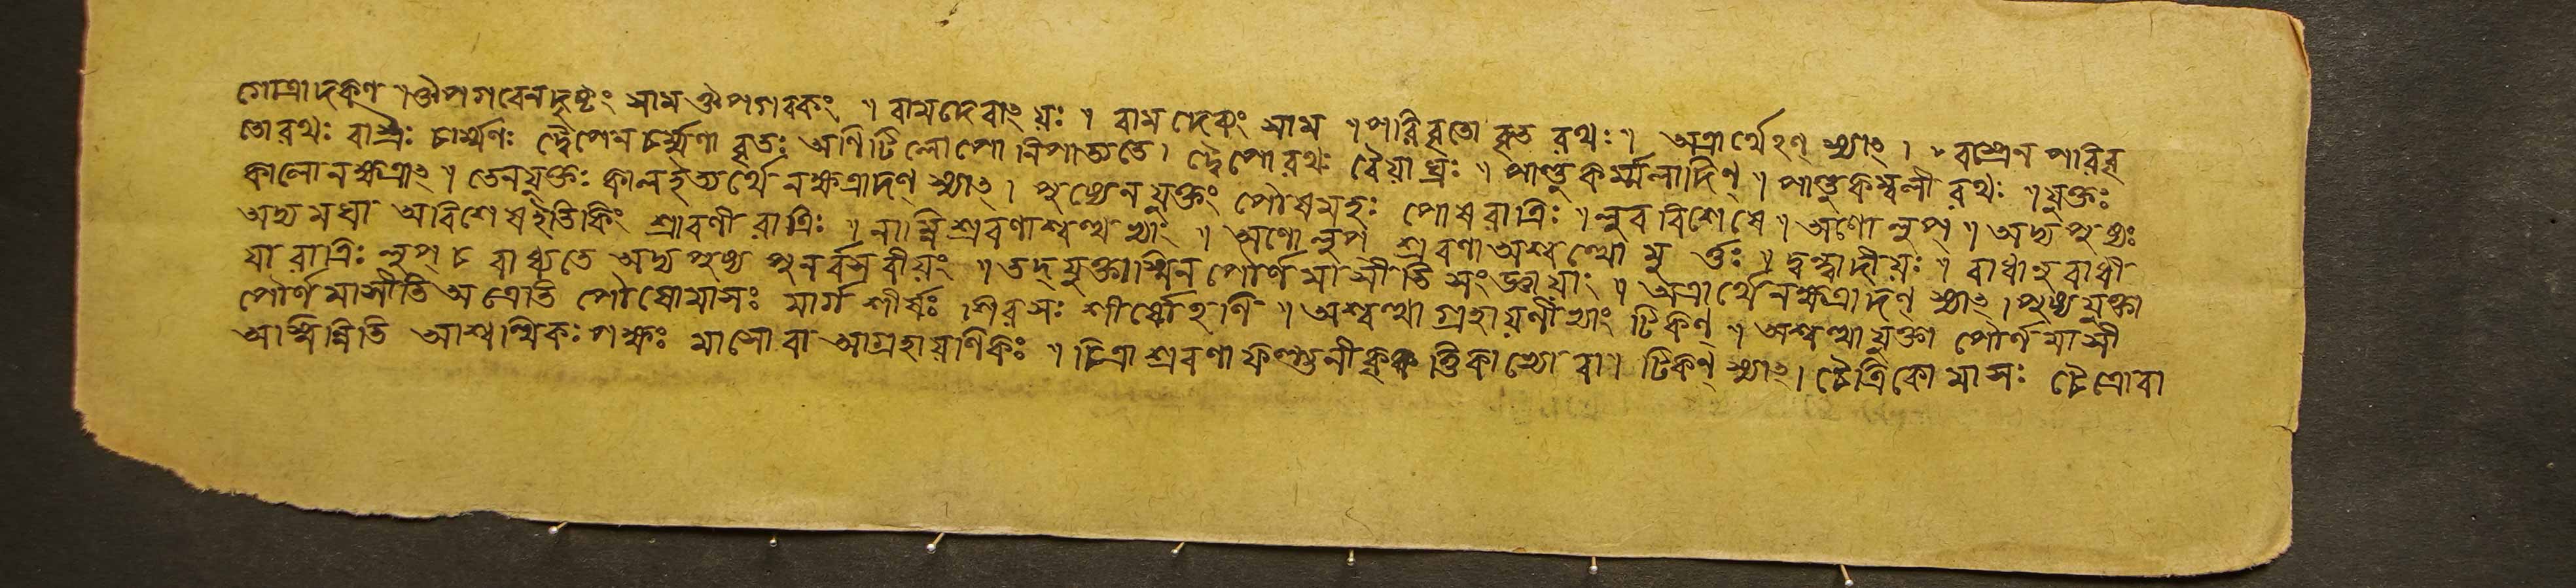 গোত্রাদকণ্ ।ঔপগবেনদৃষ্টং সাম ঔপগবকং । বামদেবাৎ যঃ । বামদেব্যং সাম ।পরিবৃতো বৃত রথঃ । অত্রার্থেঽণ্ স্যাৎ । বস্ত্রেন পরিবৃ
তোরথঃ বাস্ত্রঃ চার্ম্মণঃ দ্বৈপেন চর্ম্মণা বৃতঃ অণি টিলোপো নিপাত্যতে। দ্বৈপো রথঃ বৈয়াঘ্রঃ । পাণ্ডুকম্বলাদিণ্ । পাণ্ডুকম্বলী রথঃ ।যুক্তঃ
কালোনক্ষত্রাৎ । তেনযুক্তঃ কালইত্যর্থে নক্ষত্রাদণ্ স্যাৎ । পুষ্যেনযুক্তং পৌষমহঃ পৌষরাত্রিঃ ।লুববিশেষে । অণো লুপ্ । অদ্য পুষ্যঃ
অদ্য মঘা অবিশেষইতিকিং শ্রাবণী রাত্রিঃ । নাম্নিশ্রবণাশ্বত্থাভ্যাং । অণো লুপ্ শ্রবণা অশ্বত্থো মুহূর্ত্তঃ । দ্বন্দ্বাদীয়ঃ । রাধানুরাধী
যা রাত্রিঃ লুপ্ চ বাধ্যতে অদ্য পুষ্য পুনর্বসবীয়ং । তদ্ যুক্তাস্মিন পৌর্ণমাসীতি সংজ্ঞায়াং । অত্রার্থে নক্ষত্রাদণ্ স্যাৎ ।পুষ্যযুক্তা
পৌর্ণমাসীতি অত্রেতি পৌষোমাসঃ মার্গশীর্ষঃ শিরসঃ শীর্ষোঽণি । অশ্বত্থাগ্রহায়ণীভ্যাং টিকণ্ । অশ্বত্থাযুক্তা পৌর্ণমাসী
অস্মিন্নিতি আশ্বত্থিকঃ পক্ষঃ মাসো বা আগ্রহায়ণিকঃ । চিত্রাশ্রবণাফল্গুনীকৃত্তিকাভ্যো বা । টিকণ্ স্যাৎ । চৈত্রিকোমাসঃ চৈত্রোবা